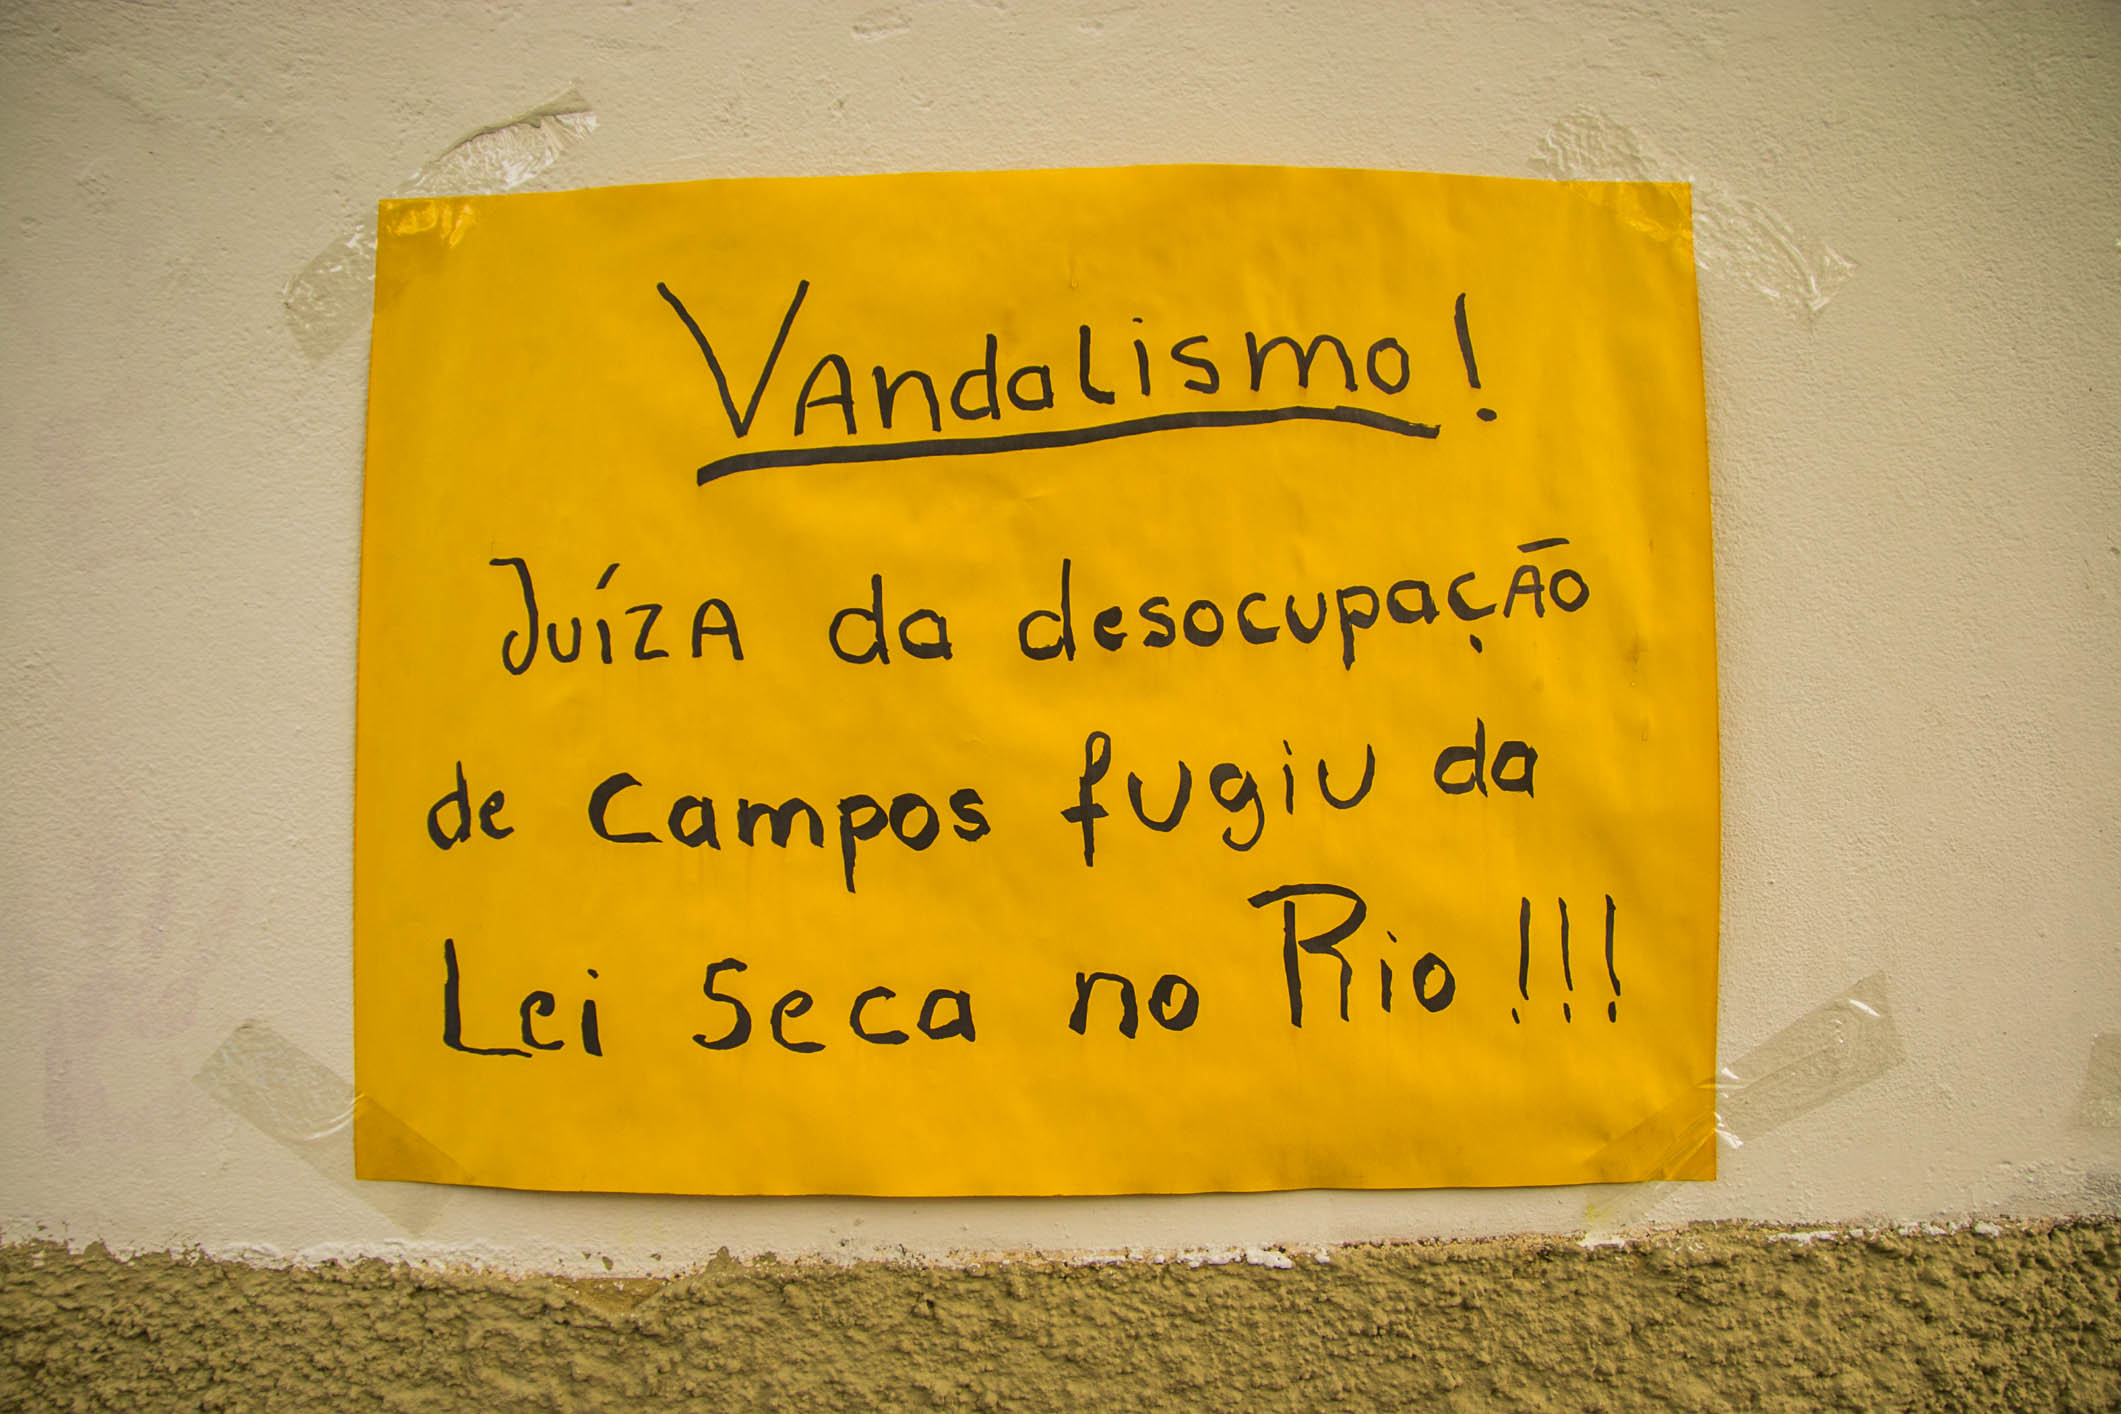 Vandalismo!
Juíza da desocupação
de Campos fugiu da
Lei Seca no Rio!!!